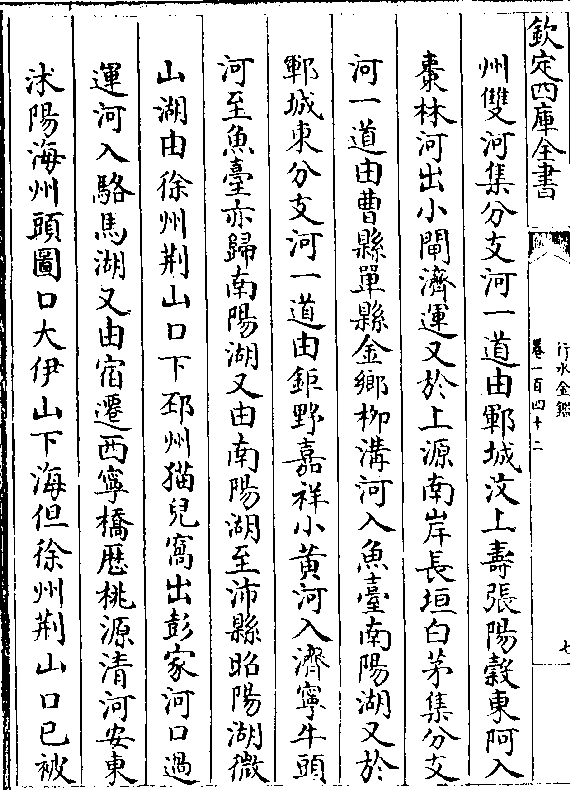 欽定四庫全書
行水金鑑
卷一百四十二
七
州雙河集分支河一道由鄆城汶上壽張陽穀東阿入
棗林河出小閘濟運又於上源南岸長垣白茅集分支
河一道由曹縣單縣金鄉柳溝河入魚臺南陽湖又於
鄆城東分支河一道由鉅野嘉祥小黃河入濟寧牛頭
河至魚臺亦歸南陽湖又由南陽湖至沛縣昭陽湖微
山湖由徐州荆山口下邳州猫兒窩出彭家河口過
運河入駱馬湖又由宿遷西寧橋歷桃源清河安東
沭陽海州頭圖口大伊山下海但徐州荆山口已被